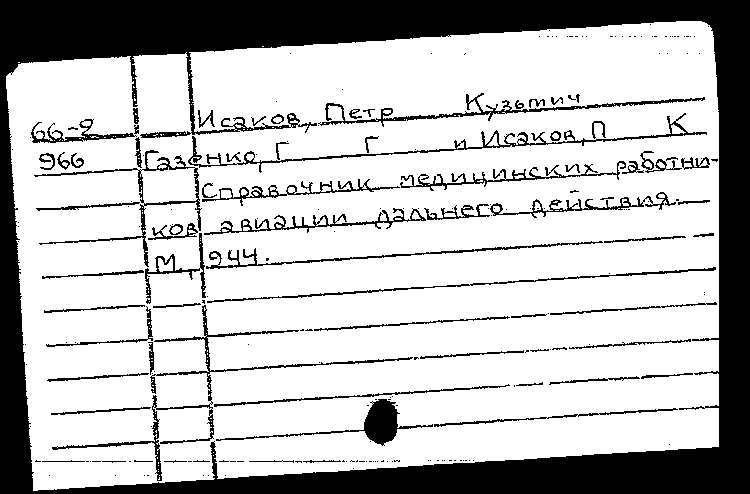 Исаков, Петр Кузьмич
66-2
966 Газенко, Г Г и Исаков, П К
Справочник медицинских работни-
ков авиации дальнего действия.
М., 1944.